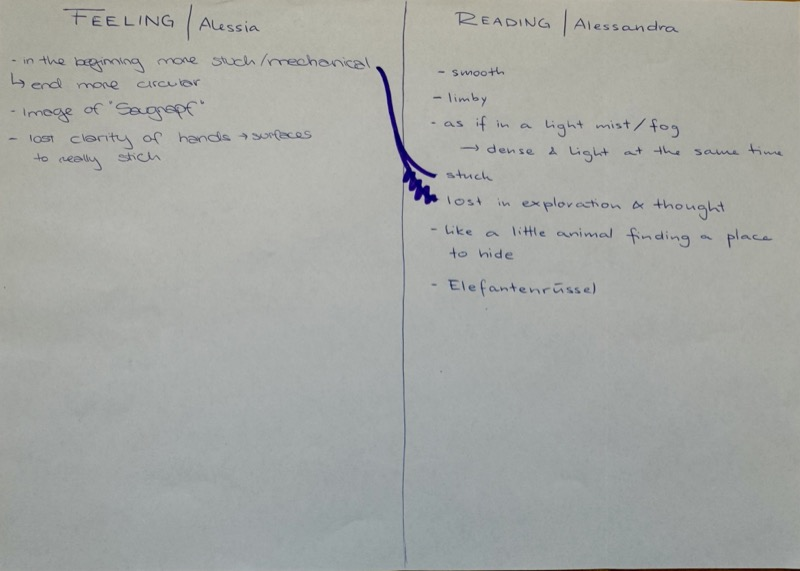 FEELING | Alessia
- in the beginning more stuck/mechanical
↳ end more circular
- Image of "Saugnapf"
- lost clarity of hands → surfaces
to really stick
READING | Alessandra
- smooth
- limby
- as if in a light mist/fog
→ dense & light at the same time
stuck
lost in exploration & thought
- like a little animal finding a place
to hide
- Elefantenrüssel